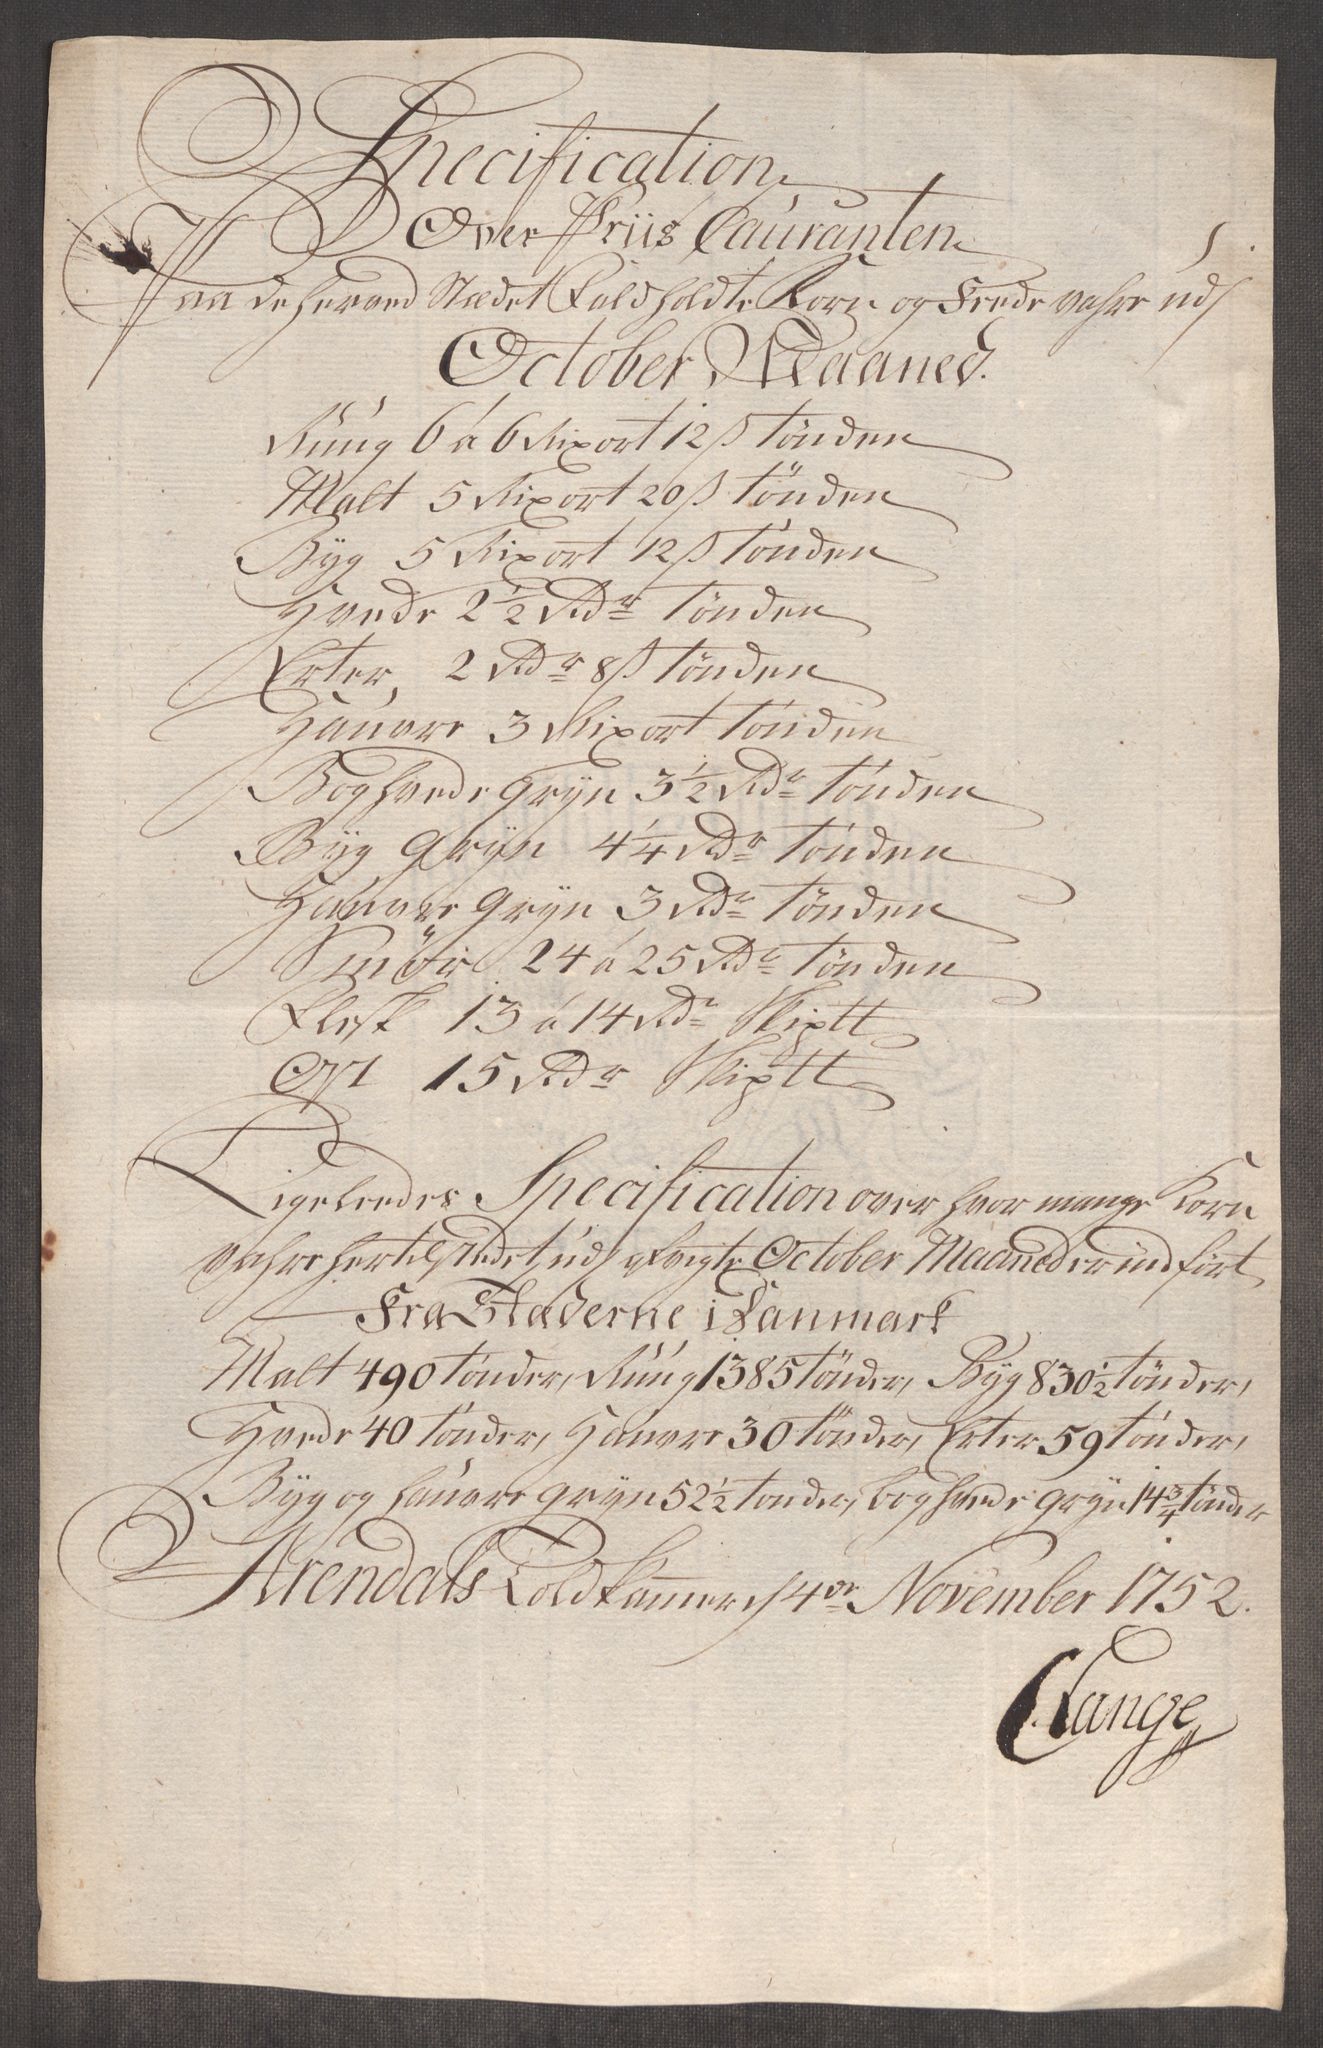 Specification
Over Priis Cauranten
Paa de herved Stædet faldholdte Korn og Fede vahre udj
October Maaned.
Rúug 6 a 6 Rixort 12 ß tönden
Malt 5 Rixort 20 ß tönden
Byg 5 Rixort 12 ß tönden
Hvede 2 1/2 Rdr tönden
Erter, 2 Rdr 8 ß tönden
Haúvre 3 Rixort tönden
Boghvede gryn 3 1/2 Rdr tönden
Byg gryn 4 1/4 Rdr tönden
Haúvre gryn 3 Rdr tönden
Smör 24 a 25 Rdr tönden
Flesk 13 á 14 Rdr Skiptt
Ost 15 Rdr Skiptt
Ligeleedes Specification over hvor mange Korn
vahre hertil Stedet udj afvigte October Maaned er indfört
Fra Stæderne i Danmark
Malt 490 tönder, Rúúg 1385 tönder, Byg 830 1/2 tönder,
Hvede 40 tönder, Haúvre 30 tönder, Erter 59 tönder,
Byg og haúvre gryn 52 1/2 tönder, boghvede gryn 14 3/4 tönder
Arendals Toldkammer d 4de November 1752.
CLange